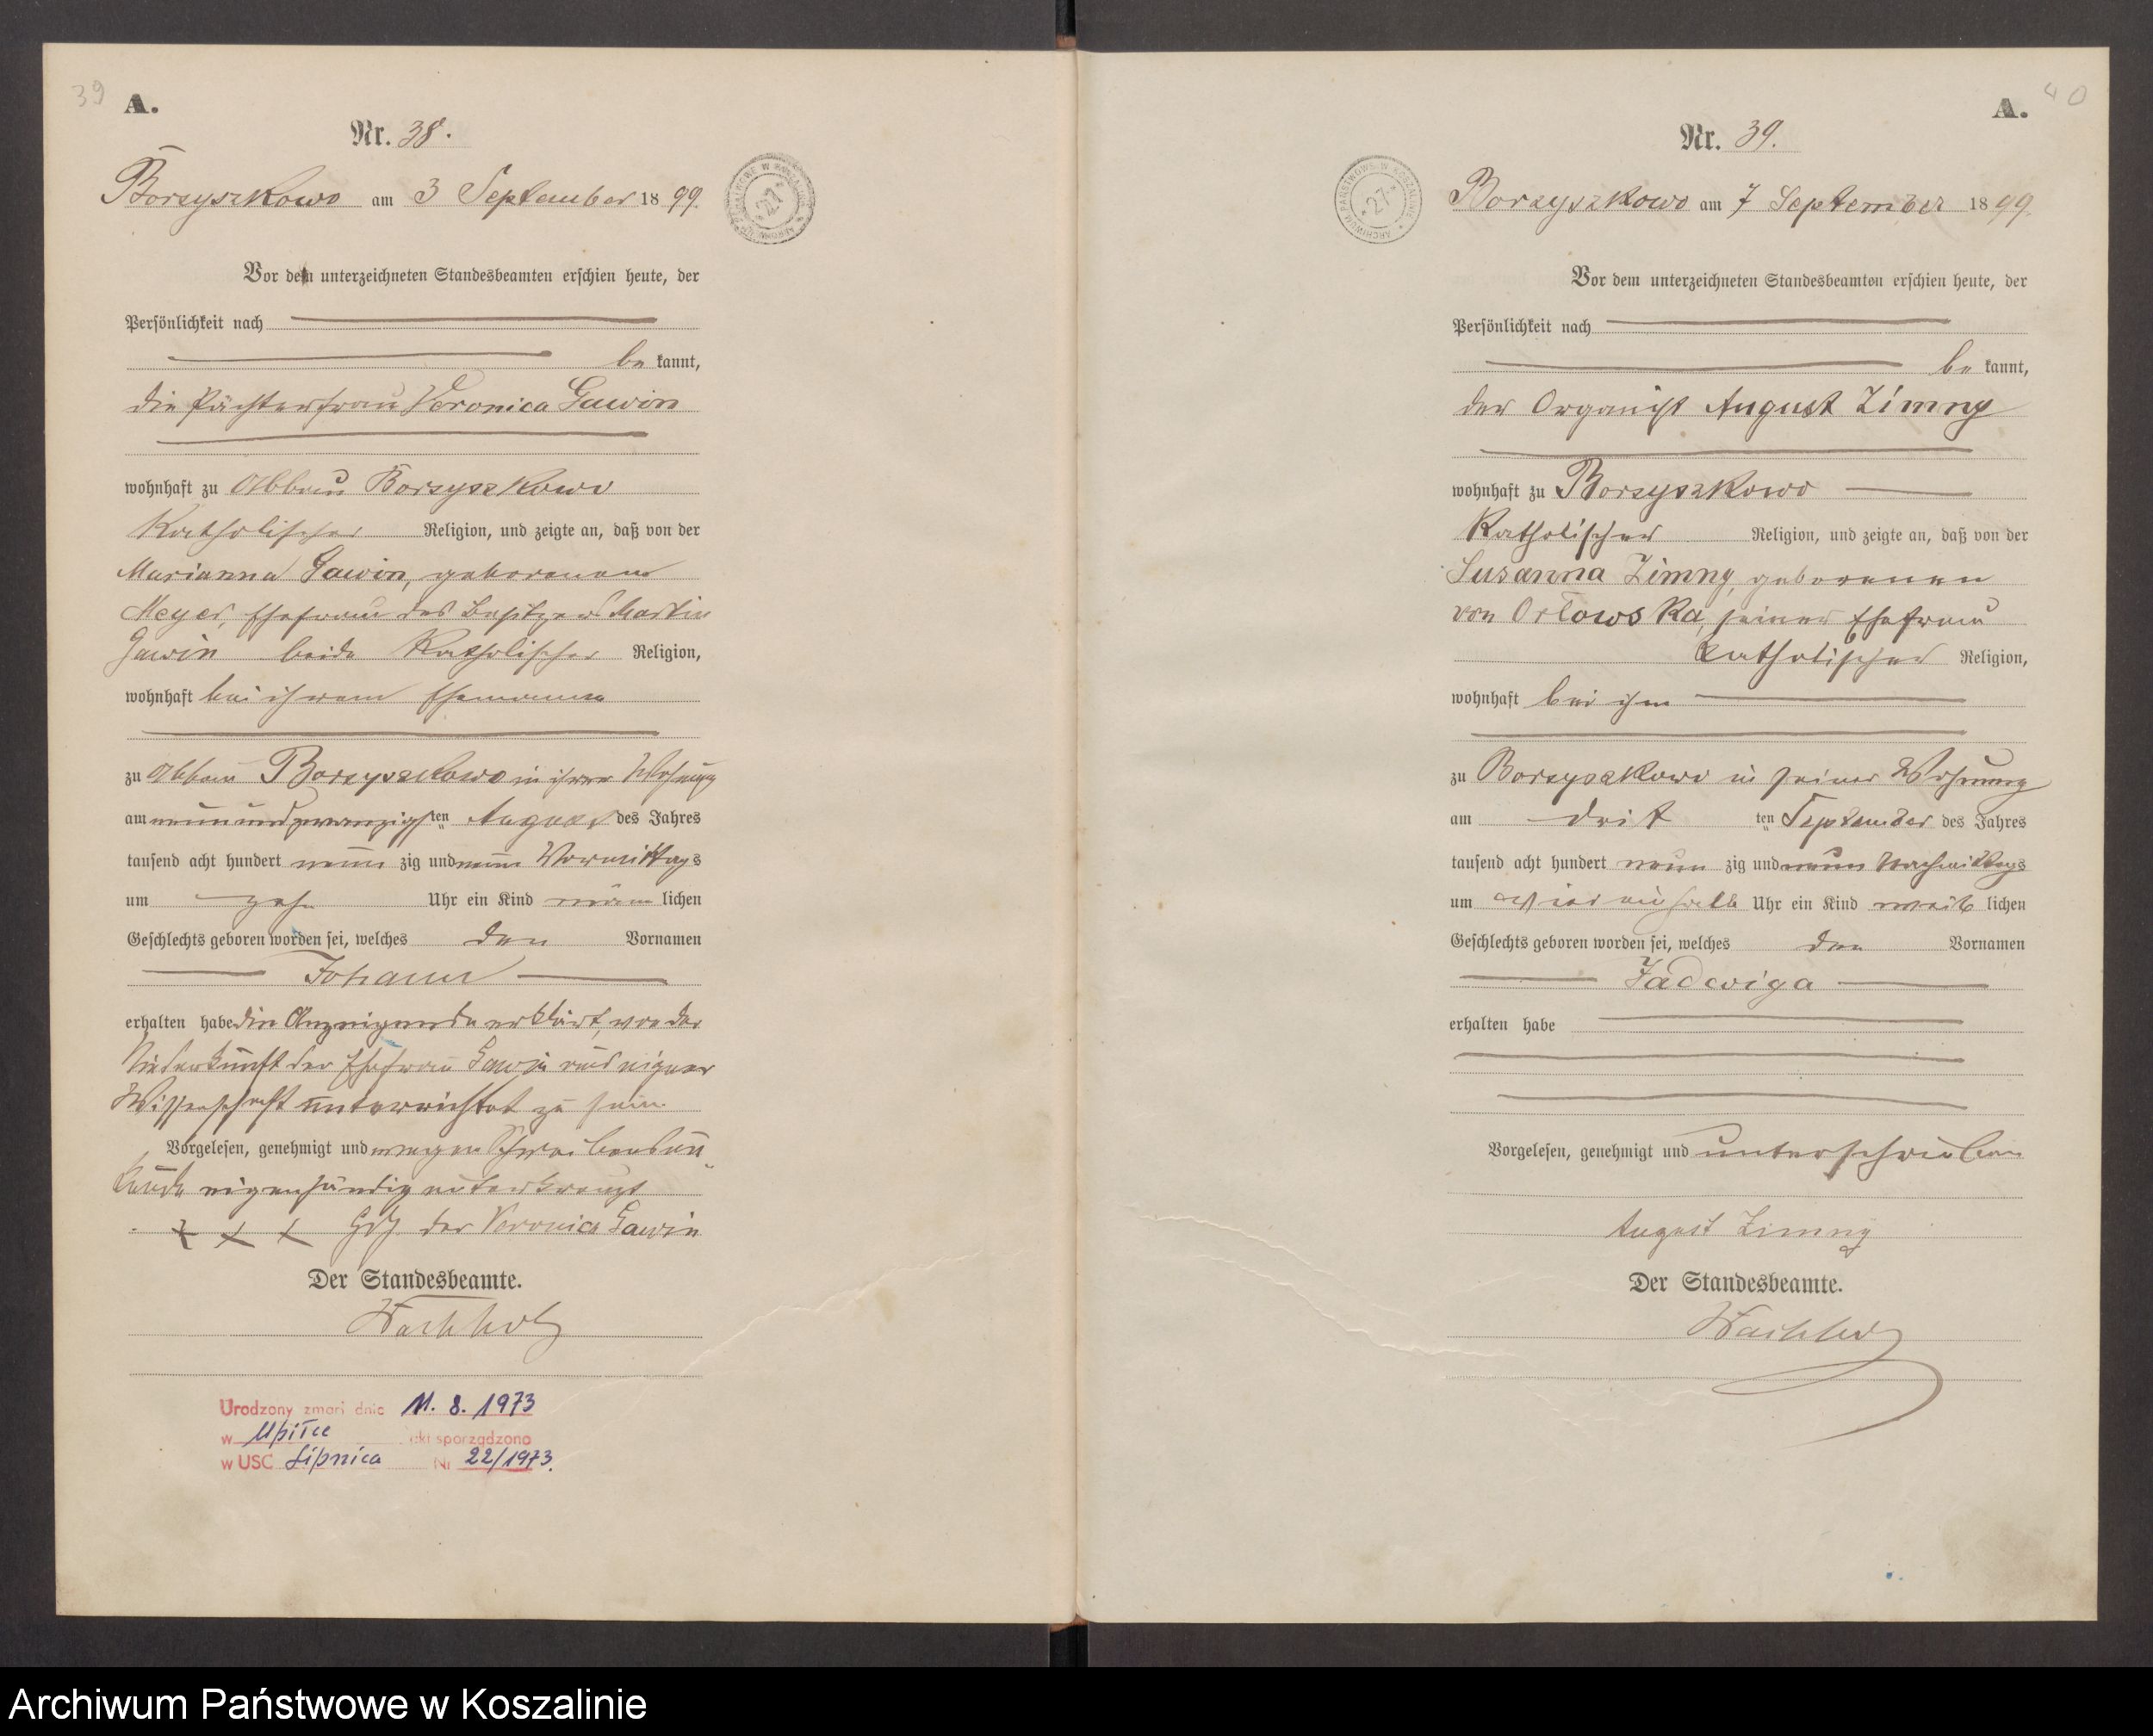 39
A.
Nr. 38.
Borzyszkowo am 3 September 1899
Vor dem unterzeichneten Standesbeamten erschien heute, der
Persönlichkeit nach
be kannt,
die Pächterfrau Veronica Gawin
wohnhaft zu Abbau Borzyszkowo
Katholischer Religion, und zeigte an, daß von der
Marianna Gawin, geborenen
Meyer, Ehefrau des Besitzers Martin
Gawin beide Katholischer Religion,
wohnhaft bei ihrem Ehemanne
zu Abbau Borzyszkowo in ihrer Wohnung
am neunundzwanzigsten August des Jahres
tausend acht hundert neun zig und neun Vormittags
um zehn Uhr ein Kind männ lichen
Geschlechts geboren worden sei, welches den Vornamen
Johann
erhalten habe die Anzeigende erklärt, von der
Niederkunft der Ehefrau Gawin aus eigener
Wissenschaft unterrichtet zu sein.
Vorgelesen, genehmigt und wegen Schreibensun
kunde eigenhändig unterkreuzt
+ + + Hdz. der Veronica Gawin
Der Standesbeamte.
Wachholz
Urodzony zmarł dnia 11. 8. 1973
w Upiłce akt sporządzono
w USC Lipnica Nr 22/1973.
ARCHIWUM PAŃSTWOWE W KOSZALINIE
27
40
A.
Nr. 39.
Borzyszkowo am 7 September 1899.
Vor dem unterzeichneten Standesbeamten erschien heute, der
Persönlichkeit nach
be kannt,
der Organist August Zimny
wohnhaft zu Borzyszkowo
Katholischer Religion, und zeigte an, daß von der
Susanna Zimny, geborenen
von Orłowska, seiner Ehefrau
Katholischer Religion,
wohnhaft bei ihm
zu Borzyszkowo in seiner Wohnung
am drit ten September des Jahres
tausend acht hundert neun zig und neun Nachmittags
um vier einhalb Uhr ein Kind weib lichen
Geschlechts geboren worden sei, welches den Vornamen
Jadwiga
erhalten habe
Vorgelesen, genehmigt und unterschrieben
August Zimny
Der Standesbeamte.
Wachholz
ARCHIWUM PAŃSTWOWE W KOSZALINIE
27
Archiwum Państwowe w Koszalinie